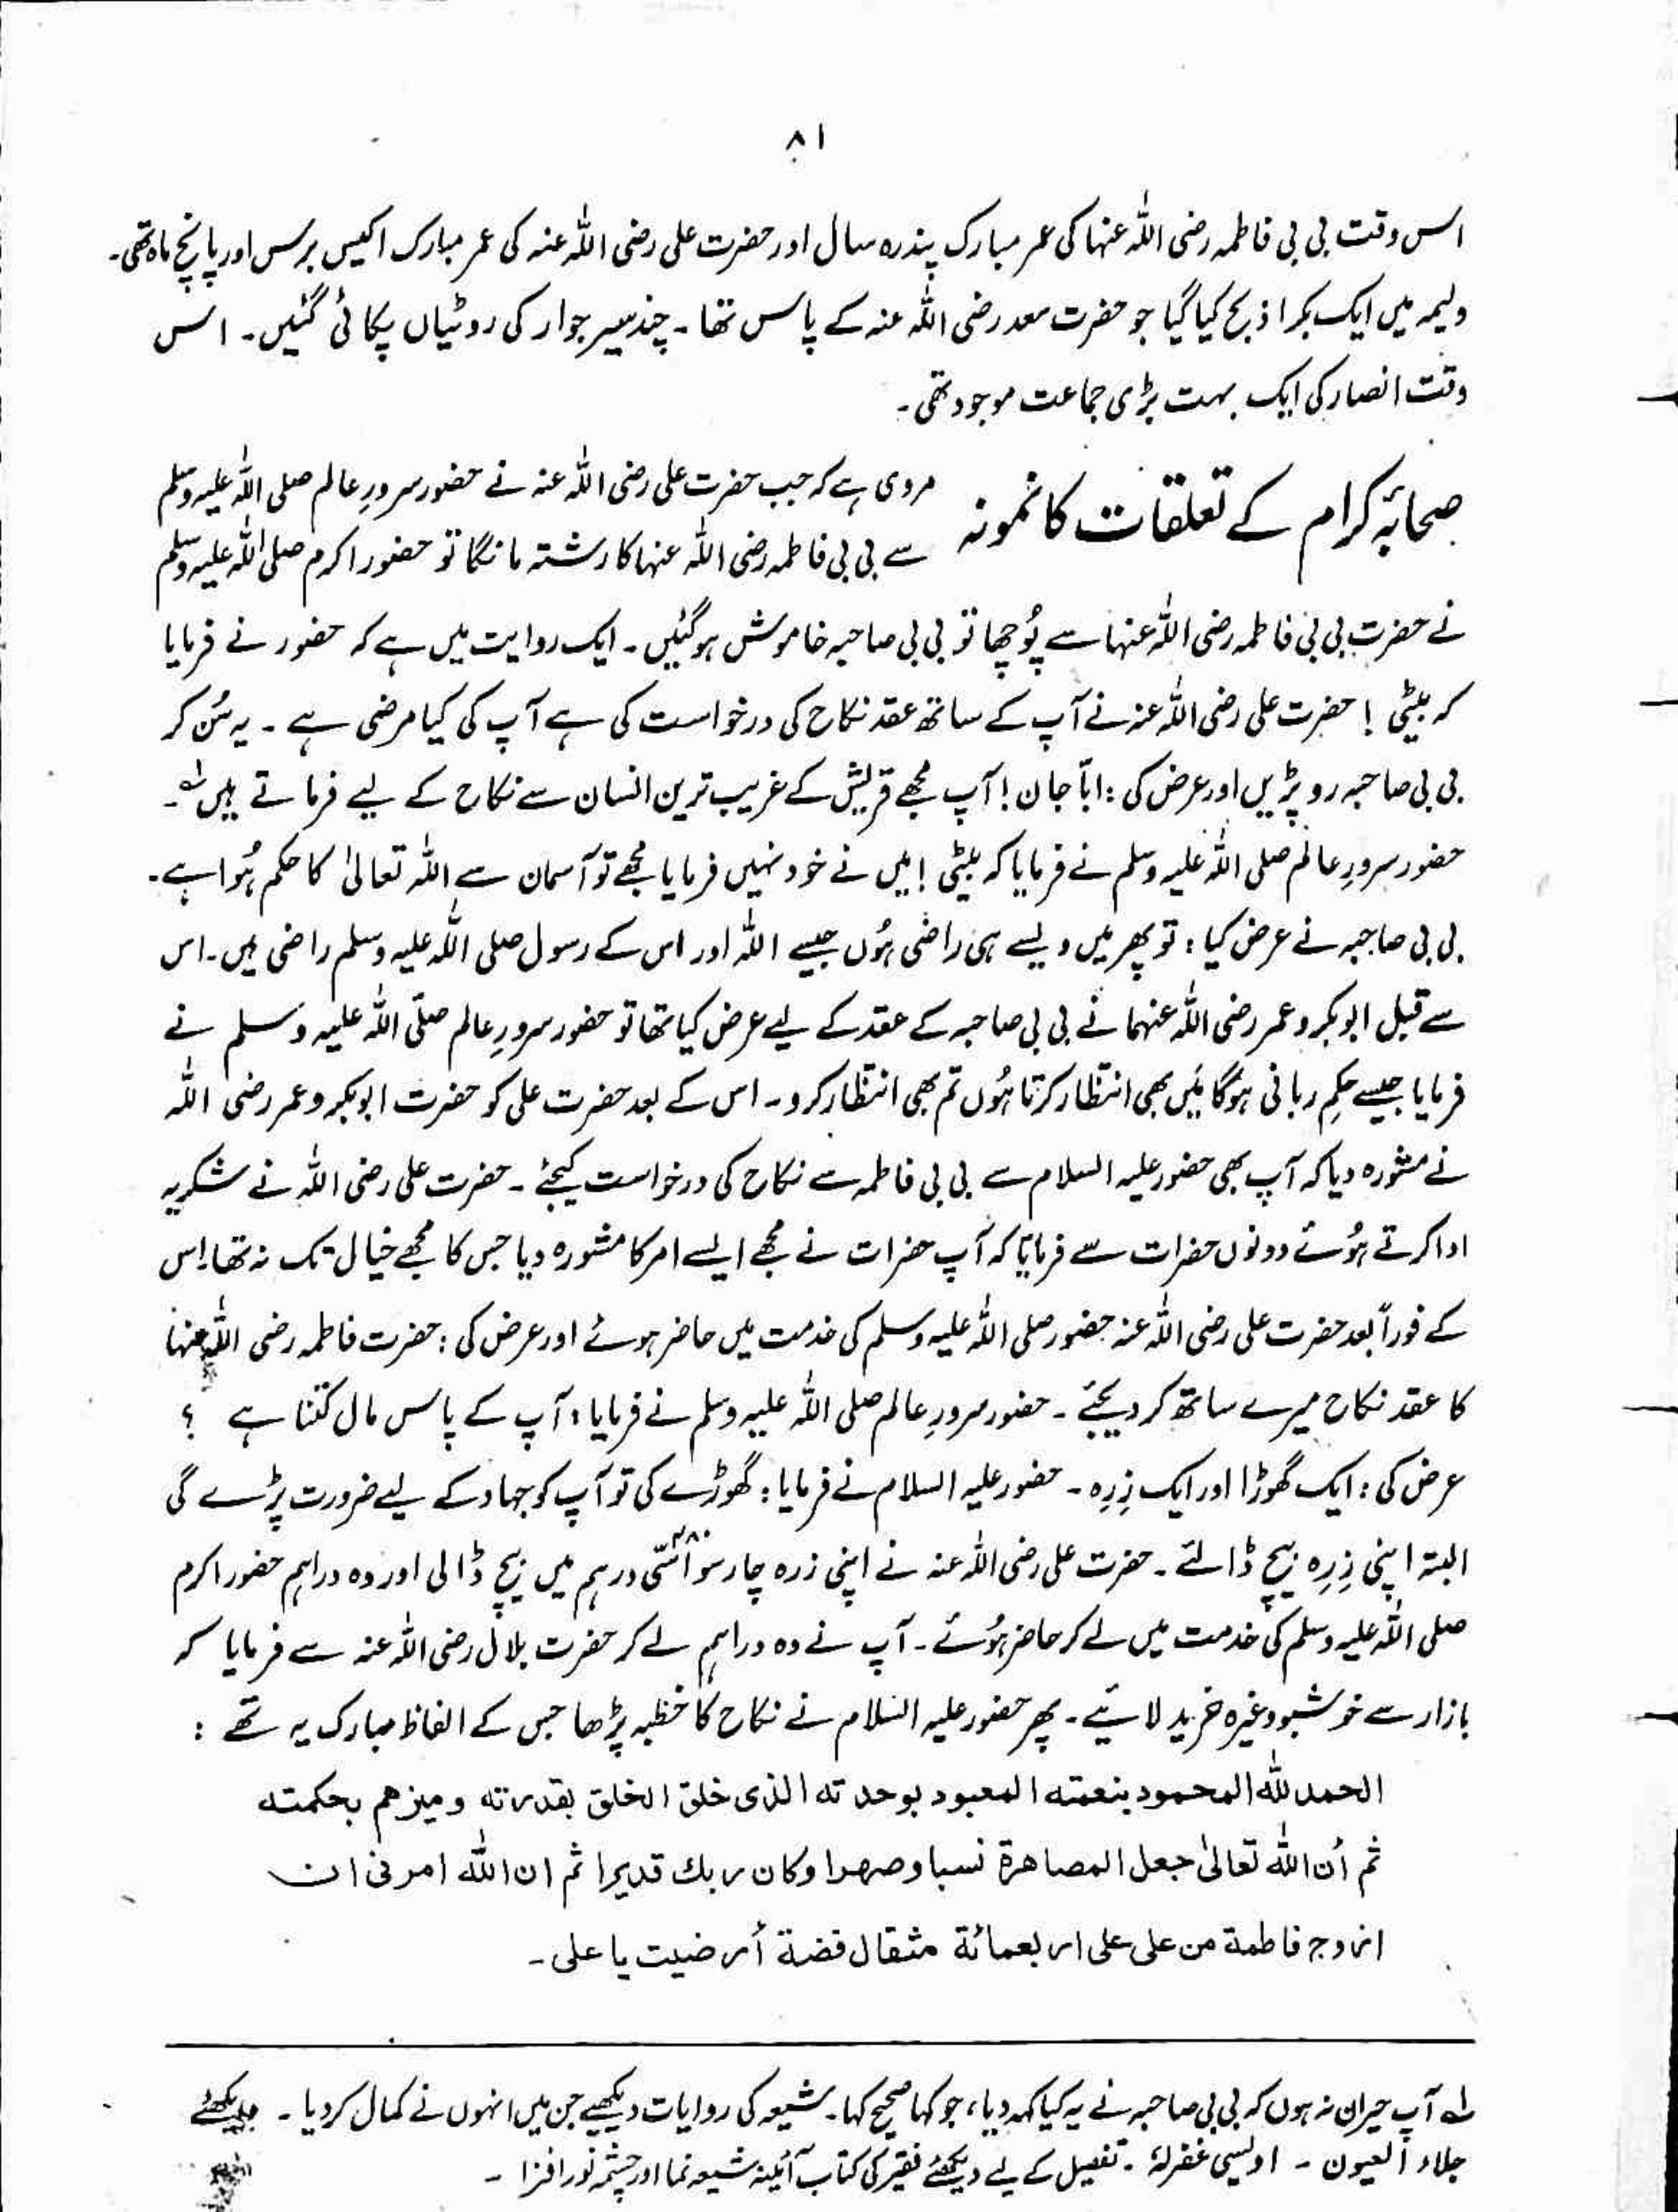 ۸۱
اس وقت بی بی فاطمہ رضی اللہ عنہا کی عمر مبارک پندرہ سال اور حضرت علی رضی اللہ عنہ کی عمر مبارک اکیس برس اور پانچ ماہ تھی۔
ولیمہ میں ایک بکرا ذبح کیا گیا جو حضرت سعد رضی اللہ عنہ کے پاس تھا۔ چند سیر جوار کی روٹیاں پکائی گئیں۔ اس
وقت انصار کی ایک بہت بڑی جماعت موجود تھی۔
صحابۂ کرام کے تعلقات کا نمونہ
مروی ہے کہ جب حضرت علی رضی اللہ عنہ نے حضور سرورِ عالم صلی اللہ علیہ وسلم
سے بی بی فاطمہ رضی اللہ عنہا کا رشتہ مانگا تو حضور اکرم صلی اللہ علیہ وسلم
نے حضرت بی بی فاطمہ رضی اللہ عنہا سے پُوچھا تو بی بی صاحبہ خاموش ہو گئیں۔ ایک روایت میں ہے کہ حضور نے فرمایا
کہ بیٹی ! حضرت علی رضی اللہ عنہ نے آپ کے ساتھ عقد نکاح کی درخواست کی ہے آپ کی کیا مرضی ہے۔ یہ سُن کر
بی بی صاحبہ رو پڑیں اور عرض کی : ابّا جان ! آپ مجھے قریش کے غریب ترین انسان سے نکاح کے لیے فرماتے ہیں لہ۔
حضور سرورِ عالم صلی اللہ علیہ وسلم نے فرمایا کہ بیٹی ! میں نے خود نہیں فرمایا مجھے تو آسمان سے اللہ تعالیٰ کا حکم ہُوا ہے۔
بی بی صاحبہ نے عرض کیا : تو پھر میں ویسے ہی راضی ہُوں جیسے اللہ اور اس کے رسول صلی اللہ علیہ وسلم راضی ہیں۔ اس
سے قبل ابوبکر و عمر رضی اللہ عنہما نے بی بی صاحبہ کے عقد کے لیے عرض کیا تھا تو حضور سرورِ عالم صلّی اللہ علیہ وسلم نے
فرمایا جیسے حکمِ ربانی ہوگا مَیں بھی انتظار کرتا ہُوں تم بھی انتظار کرو۔ اس کے بعد حضرت علی کو حضرت ابوبکر و عمر رضی اللہ
نے مشورہ دیا کہ آپ بھی حضور علیہ السلام سے بی بی فاطمہ سے نکاح کی درخواست کیجئے۔ حضرت علی رضی اللہ نے شکریہ
ادا کرتے ہُوئے دونوں حضرات سے فرمایا کہ آپ حضرات نے مجھے ایسے امر کا مشورہ دیا جس کا مجھے خیال تک نہ تھا۔ اس
کے فوراً بعد حضرت علی رضی اللہ عنہ حضور صلی اللہ علیہ وسلم کی خدمت میں حاضر ہوئے اور عرض کی : حضرت فاطمہ رضی اللہ عنہا
کا عقد نکاح میرے ساتھ کر دیجئے۔ حضور سرورِ عالم صلی اللہ علیہ وسلم نے فرمایا : آپ کے پاس مال کتنا ہے ؟
عرض کی : ایک گھوڑا اور ایک زِرہ۔ حضور علیہ السلام نے فرمایا : گھوڑے کی تو آپ کو جہاد کے لیے ضرورت پڑے گی
البتہ اپنی زِرہ بیچ ڈالئے۔ حضرت علی رضی اللہ عنہ نے اپنی زرہ چار سو اسّی ۴۸۰ درہم میں بیچ ڈالی اور وہ دراہم حضور اکرم
صلی اللہ علیہ وسلم کی خدمت میں لے کر حاضر ہُوئے۔ آپ نے وہ دراہم لے کر حضرت بلال رضی اللہ عنہ سے فرمایا کہ
بازار سے خوشبو وغیرہ خرید لائیے۔ پھر حضور علیہ السلام نے نکاح کا خطبہ پڑھا جس کے الفاظ مبارک یہ تھے :
الحمد للّٰہ المحمود بنعمته المعبود بوحدته الذی خلق الخلق بقدرته ومیزهم بحکمته
ثم أن اللّٰہ تعالیٰ جعل المصاهرة نسبا وصهرا وکان ربك قدیرا ثم ان اللّٰہ امرنی ان
ازوج فاطمة من علی علی اربعمائة مثقال فضة أرضیت یا علی۔
لہ آپ حیران نہ ہوں کہ بی بی صاحبہ نے یہ کیا کہہ دیا، جو کہا صحیح کہا۔ شیعہ کی روایات دیکھیے جن میں انہوں نے کمال کر دیا۔ دیکھئے
جلاء العیون۔ اویسی غفرلہٗ۔ تفصیل کے لیے دیکھئے فقیر کی کتاب آئینہ شیعہ نما اور چشمہ نور افزا۔